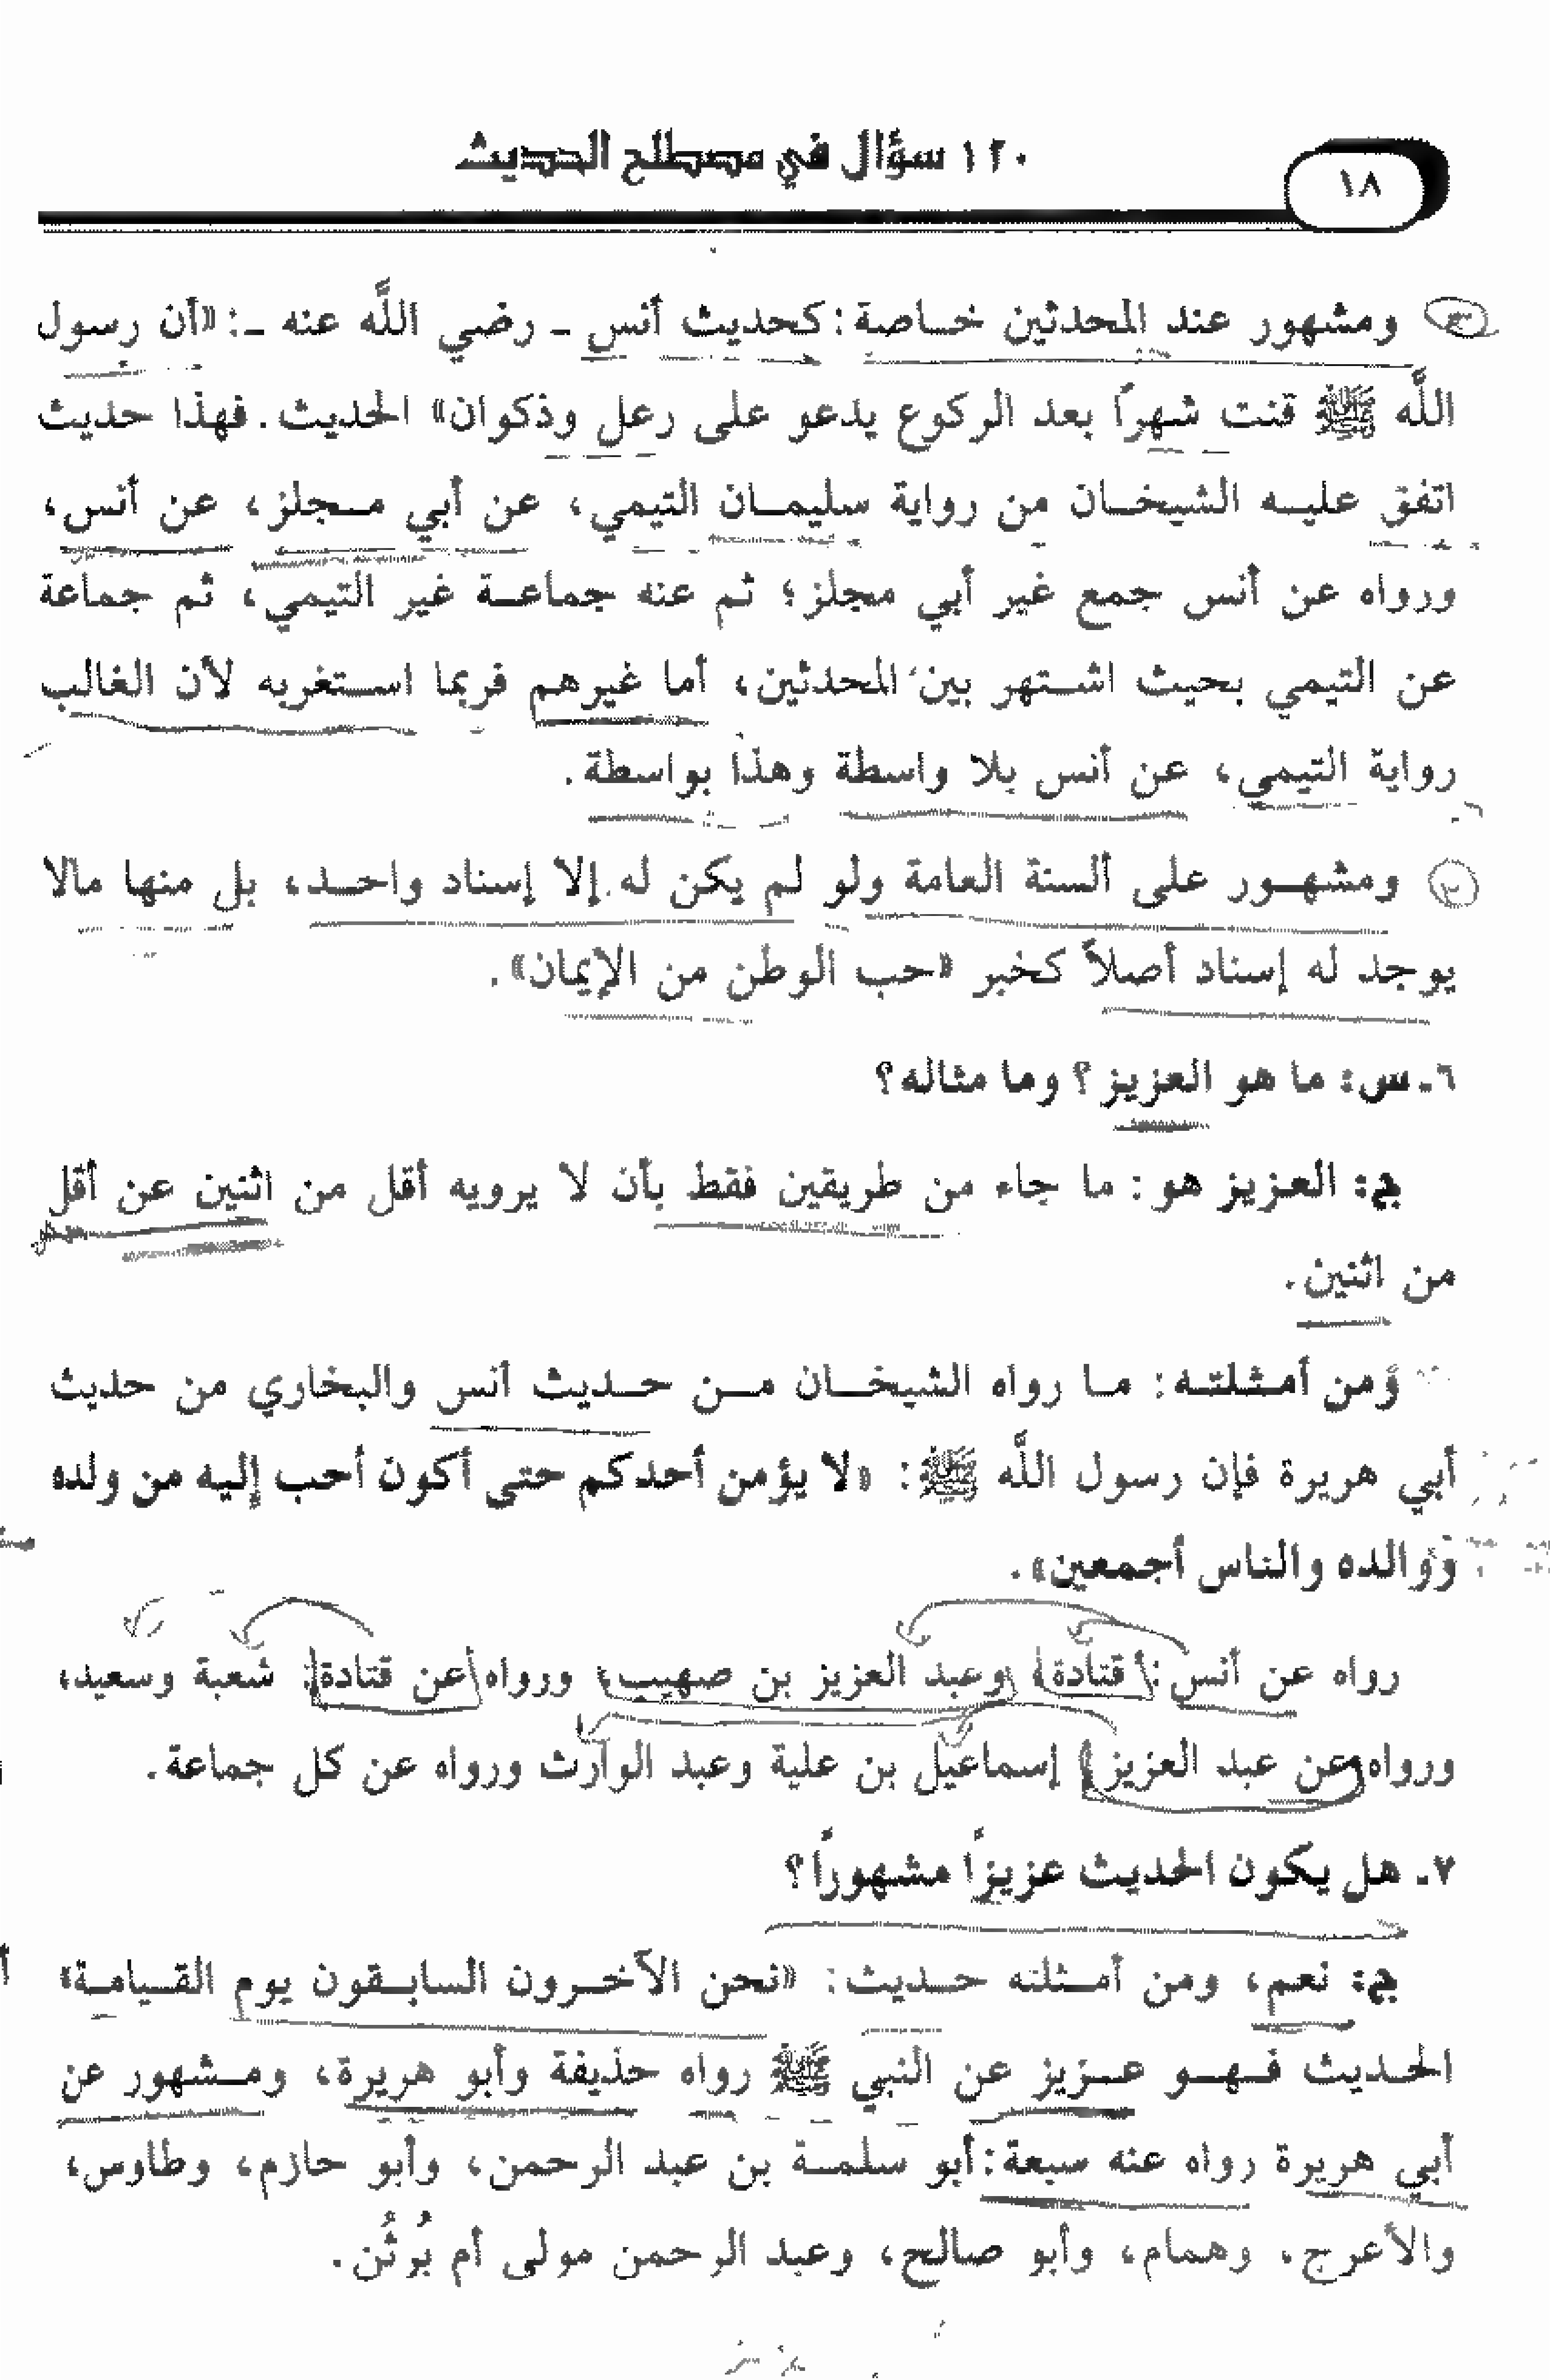 ١٢٠ سؤال في مصطلح الحديث
١٨
ومشهور عند المحدثين خاصة: كحديث أنس ـ رضي اللَّه عنه ـ: «أن رسول
اللَّه ﷺ قنت شهراً بعد الركوع يدعو على رعل وذكوان» الحديث. فهذا حديث
اتفق عليه الشيخان من رواية سليمان التيمي، عن أبي مجلز، عن أنس،
ورواه عن أنس جمع غير أبي مجلز؛ ثم عنه جماعة غير التيمي، ثم جماعة
عن التيمي بحيث اشتهر بين المحدثين، أما غيرهم فربما استغربه لأن الغالب
رواية التيمي، عن أنس بلا واسطة وهذا بواسطة.
ومشهور على ألسنة العامة ولو لم يكن له إلا إسناد واحد، بل منها مالا
يوجد له إسناد أصلاً كخبر «حب الوطن من الإيمان».
٦ـ س: ما هو العزيز؟ وما مثاله؟
ج: العزيز هو: ما جاء من طريقين فقط بأن لا يرويه أقل من اثنين عن أقل
من اثنين.
ومن أمثلته: ما رواه الشيخان من حديث أنس والبخاري من حديث
أبي هريرة فإن رسول اللَّه ﷺ: «لا يؤمن أحدكم حتى أكون أحب إليه من ولده
ووالده والناس أجمعين».
رواه عن أنس: قتادة، وعبد العزيز بن صهيب، ورواه عن قتادة: شعبة وسعيد،
ورواه عن عبد العزيز: إسماعيل بن علية وعبد الوارث ورواه عن كل جماعة.
٧ـ هل يكون الحديث عزيزاً مشهوراً؟
ج: نعم، ومن أمثلته حديث: «نحن الآخرون السابقون يوم القيامة»
الحديث فهو عزيز عن النبي ﷺ رواه حذيفة وأبو هريرة، ومشهور عن
أبي هريرة رواه عنه سبعة: أبو سلمة بن عبد الرحمن، وأبو حازم، وطاوس،
والأعرج، وهمام، وأبو صالح، وعبد الرحمن مولى أم بُرثُن.